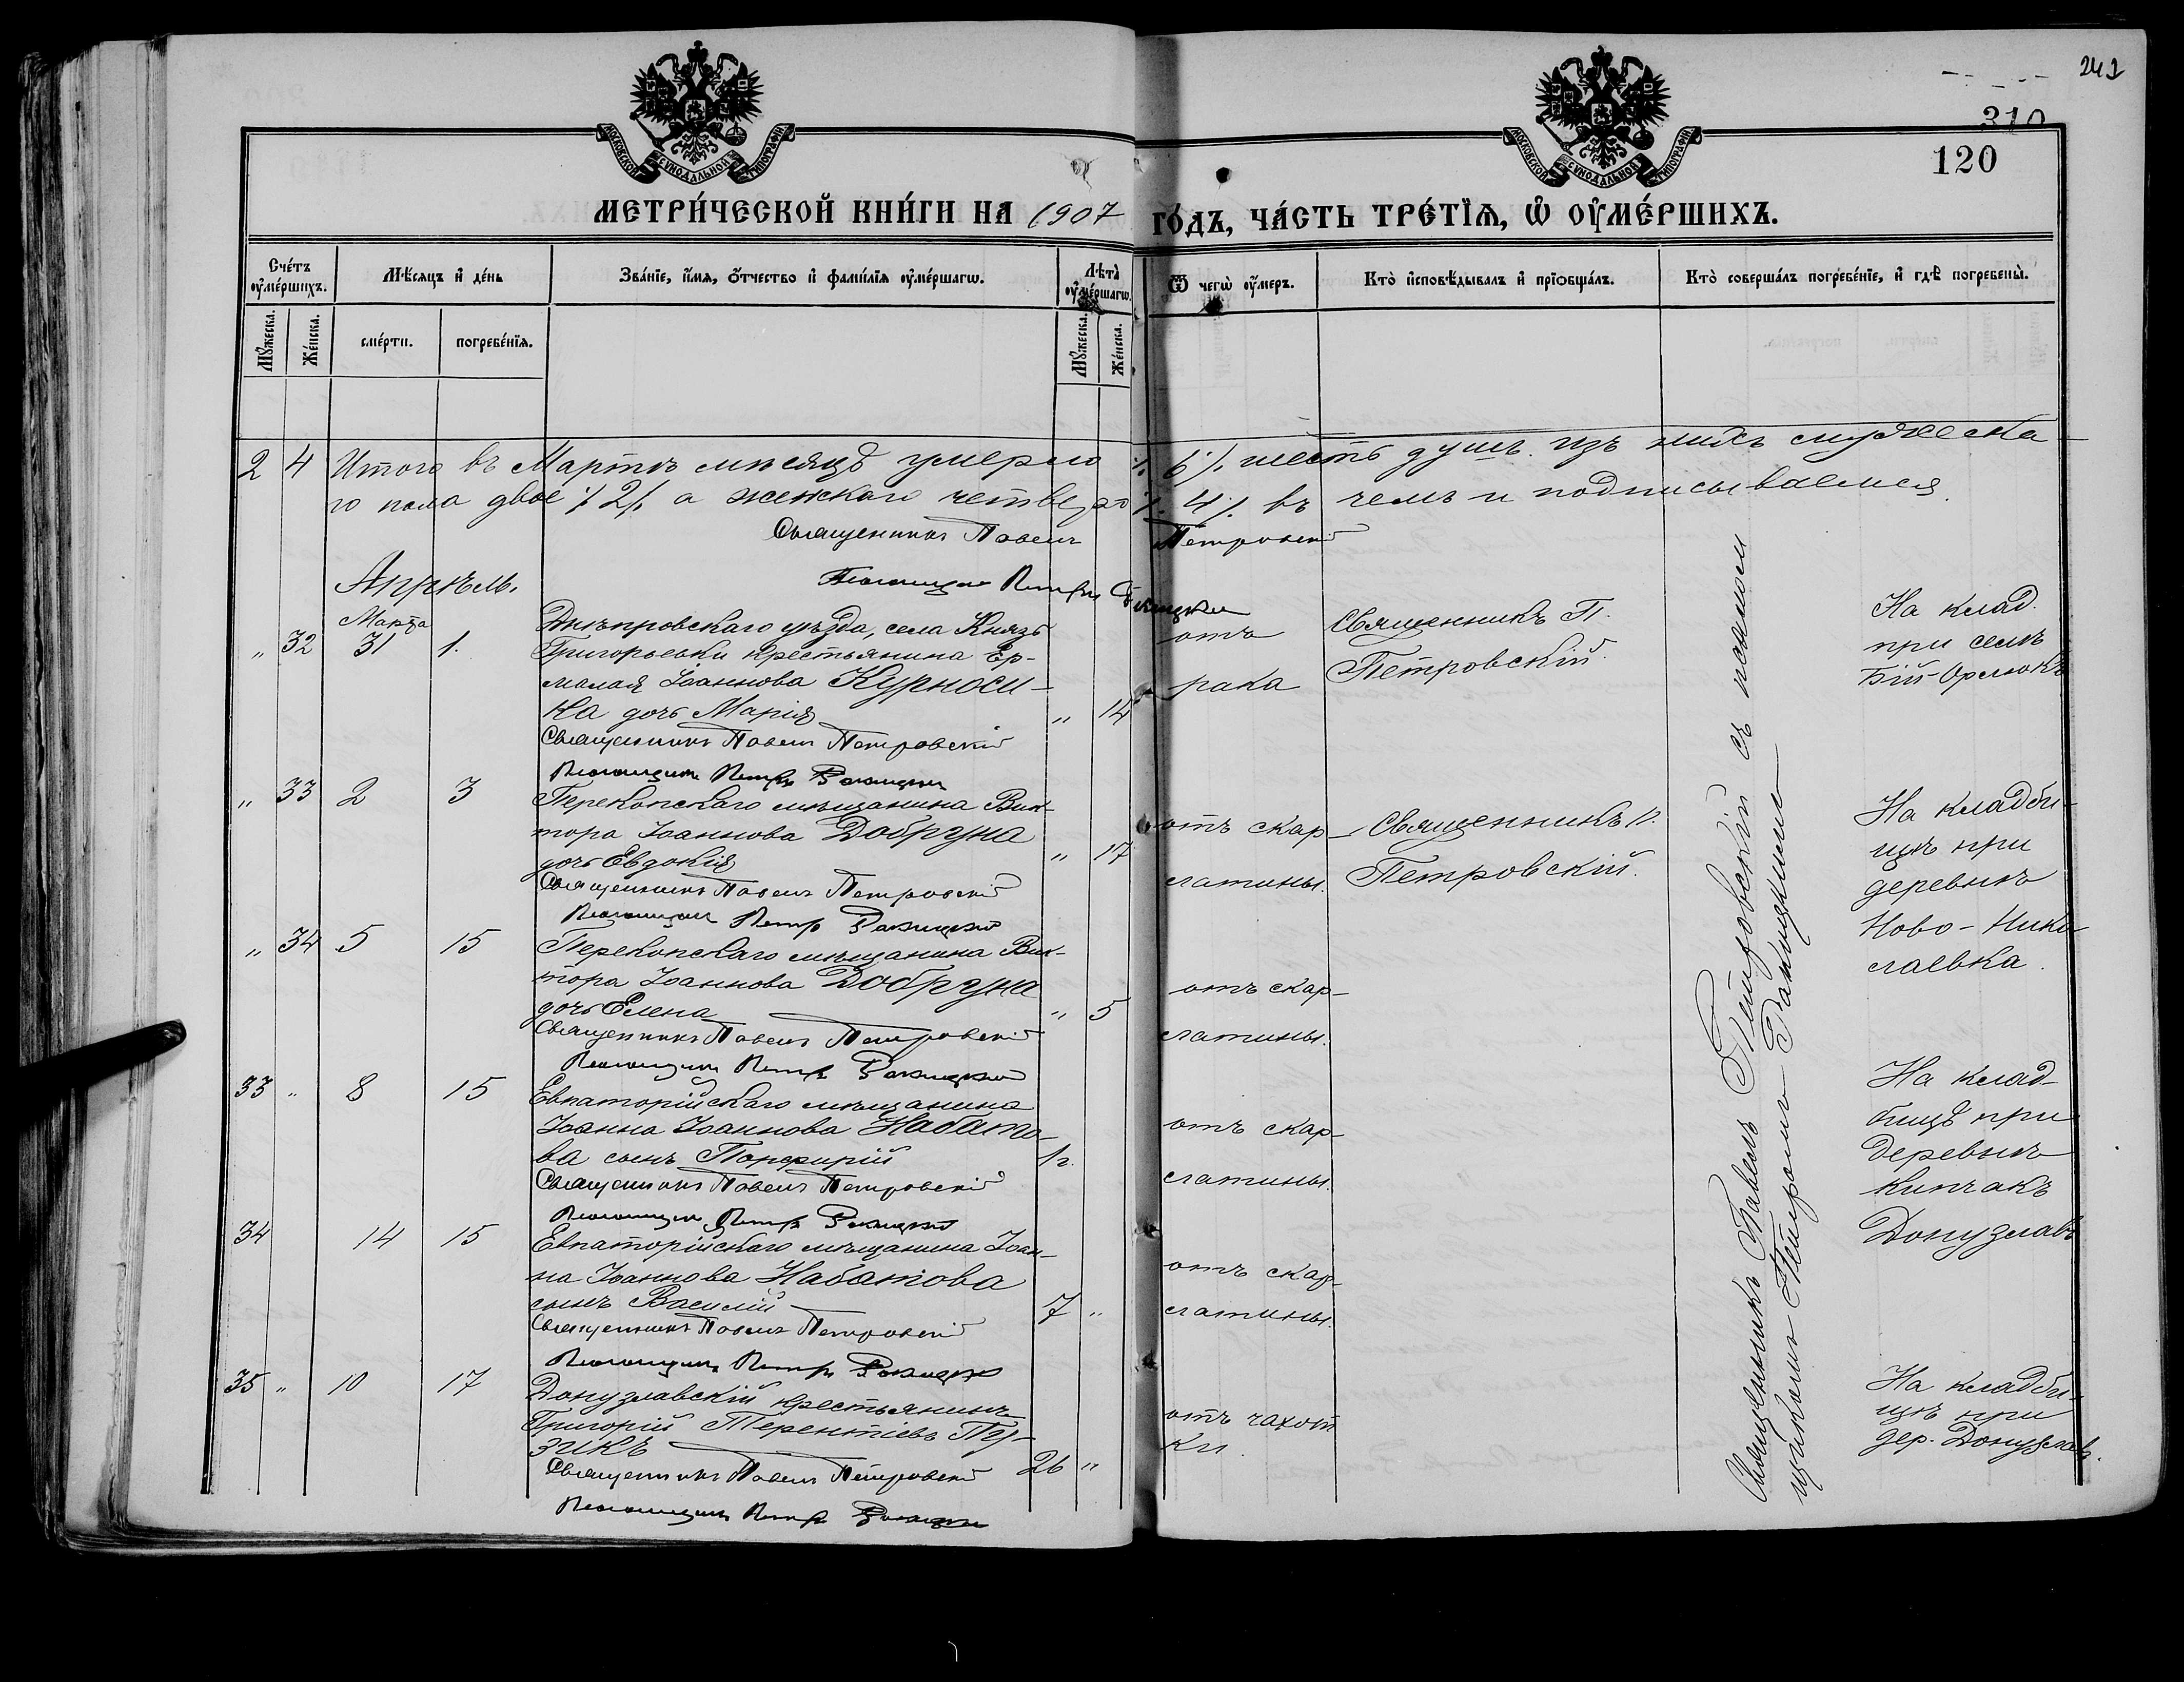 241
310
120
МОСКОВСКОЙ СѴНОДАЛЬНОЙ ТИПОГРАФІИ
МОСКОВСКОЙ СѴНОДАЛЬНОЙ ТИПОГРАФІИ
МЕТРИ́ЧЕСКОЙ КНИ́ГИ НА 1907 ГО́ДЪ, ЧА́СТЬ ТРЕ́ТІѦ, Ѡ҆ ОУ҆МЕ́РШИХЪ.
Сче́тъ оу҆ме́ршихъ.
Мѣ́сяцъ и҆ де́нь
Зва́ніе, и҆́мѧ, ѻ҆́тчество и҆ фами́лїѧ оу҆ме́ршагѡ.
Лѣ́та оу҆ме́ршагѡ.
Ѿ чегѡ̀ оу҆́меръ.
Кто̀ и҆сповѣ́дывалъ и҆ прїѡбща́лъ.
Кто̀ соверша́лъ погребе́нїе, и҆ гдѣ̀ погребены̀.
Мꙋ́жеска.
Же́нска.
сме́рти.
погребе́нїѧ.
Мꙋ́жеска.
Же́нска.
2 4 Итого въ Мартѣ мѣсяцѣ умерло ./. 6 /. шесть душъ. изъ нихъ мужеска-
го пола двое ./. 2 /. а женскаго четверо ./. 4 /. въ чемъ и подписываемся.
Священникъ Павелъ Петровскій
Псаломщикъ Петръ Ракицкій
Апрѣль.
Марта
" 32 31 1.
Днѣпровскаго уѣзда, села Князь
Григорьевки крестьянина Ер-
молая Іоаннова Курноси-
ка дочь Марія " 14
Священникъ Павелъ Петровскій
Псаломщикъ Петръ Ракицкій
отъ
рака
Священникъ П.
Петровскій.
На клад.
при селѣ
Бій-Орлюкъ
" 33 2 3
Перекопскаго мѣщанина Вик-
тора Іоаннова Добруна
дочь Евдокія " 17
Священникъ Павелъ Петровскій
Псаломщикъ Петръ Ракицкій
отъ скар-
латины.
Священникъ П.
Петровскій.
На кладби-
щѣ при
деревнѣ
Ново-Нико
лаевка.
" 34 5 15
Перекопскаго мѣщанина Вик-
тора Іоаннова Добруна
дочь Елена " 5
Священникъ Павелъ Петровскій
Псаломщикъ Петръ Ракицкій
отъ скар-
латины.
33 " 8 15
Евпаторійскаго мѣщанина
Іоанна Іоаннова Набато-
ва сынъ Порфирій 1 г.
Священникъ Павелъ Петровскій
Псаломщикъ Петръ Ракицкій
отъ скар-
латины.
На клад-
бищѣ при
деревнѣ
Кипчакъ
Донузлавъ
34 14 15
Евпаторійскаго мѣщанина Іоан-
на Іоаннова Набатова
сынъ Василій 7 "
Священникъ Павелъ Петровскій
Псаломщикъ Петръ Ракицкій
отъ скар-
латины.
35 " 10 17
Донузлавскій крестьянинъ
Григорій Терентіевъ Пу-
зикъ 26 "
Священникъ Павелъ Петровскій
Псаломщикъ Петръ Ракицкій
отъ чахот
ки.
На кладби-
щѣ при
дер. Донузлавъ.
Священникъ Павелъ Петровскій съ псалом
щикомъ Петромъ Ракицкимъ